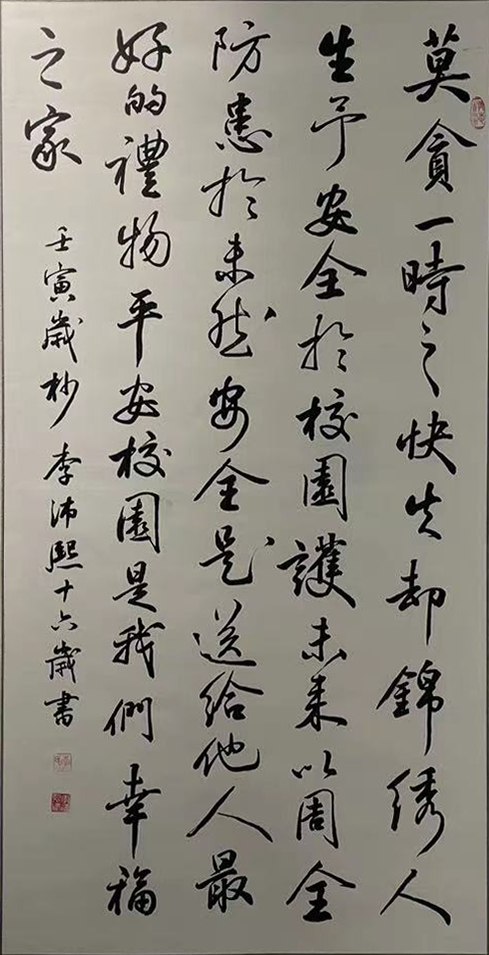 莫貪一時之快失却錦绣人
生予安全於校園護未来以周全
防患於未然安全是送給他人最
好的禮物平安校園是我們幸福
之家
壬寅歲杪李沛熙十六歲書